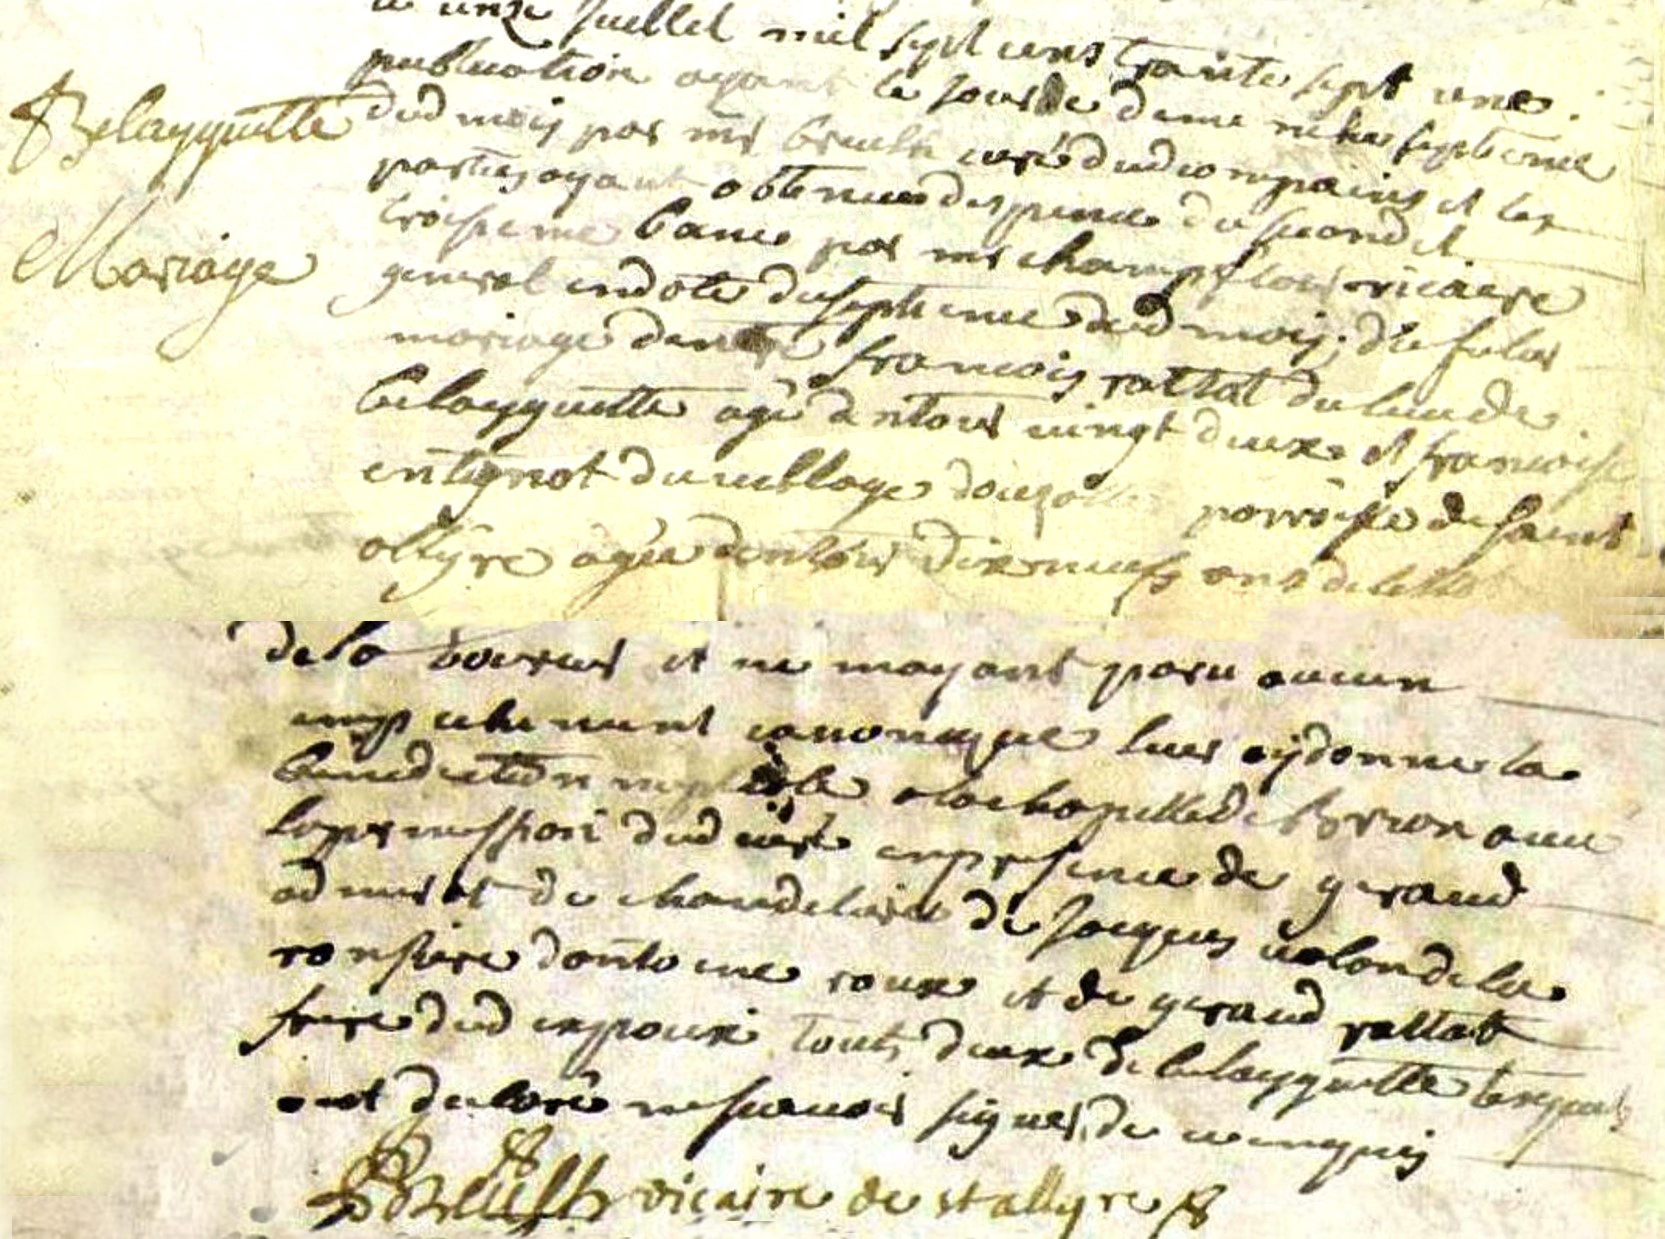 Belayguette
Mariage
le onze juillet mil sept cens trante sept une
publication ayant le jour de dimenche septieme
dud mois par mr breulh curé dud compains et les
parties ayant obtenue dispence du second et
troisieme banc par mr champflour vicaire
general endote du septieme dud mois; du futur
mariage dentre francois rattat du lieu de
belayguette agé denviron vingt deux et francoise
entignat du village paroisse de saint
allyre agée denviron dix neufs ans
de la et ne mayant paru aucun
empechement canonique leur ay donné la
benediction nuptiale a la chapelle de Brion avec
la permission dud curé en presence de geraud
admirat de chandelière de jacques valon de la
ronsiere dantoine roux et de geraud rattat
frere dud expoux touts deux de belayguette lesquels
ont declaré ne scavoir signer, de ce enquis
vicaire de st allyre